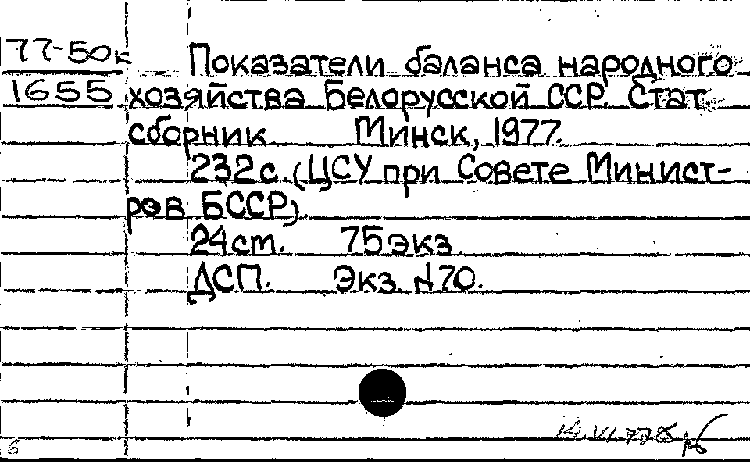 77-50к
1655
Показатели баланса народного
хозяйства Белорусской ССР. Стат
сборник Минск, 1977.
232 с. (ЦСУ при Совете Минист-
ров БССР)
24 ст. 75 экз.
ДСП. Экз. N 70.
6